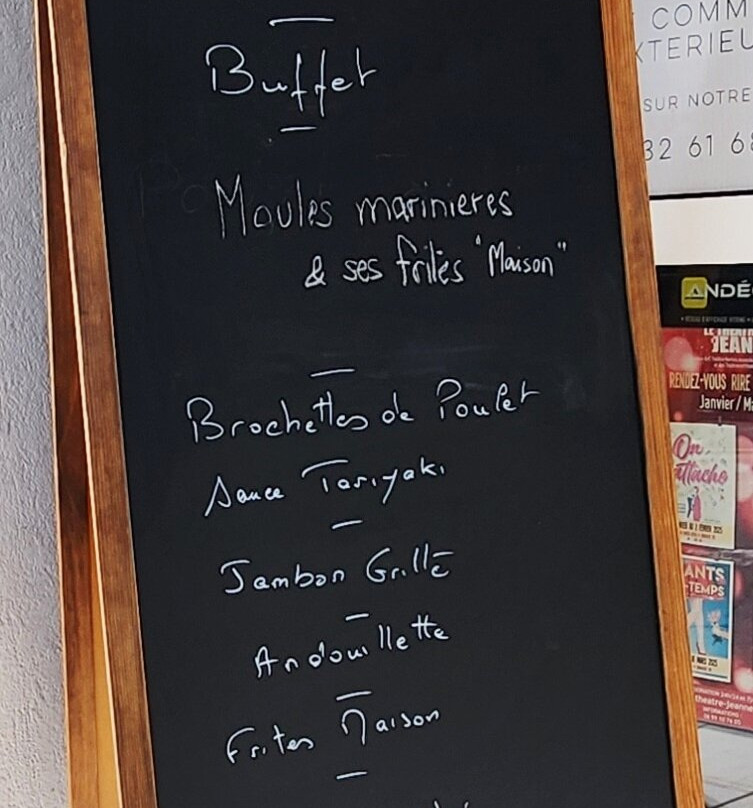 COMM
XTERIEU
SUR NOTRE
32 61 6
Buffet
Moules marinieres
& ses frites "Maison"
Brochettes de Poulet
Sauce Tariyaki
Jambon Grillé
Andouillette
Frites Maison
ANDÉ
LE THÉÂT
JEAN
RENDEZ-VOUS RIRE
Janvier / Ma
On
attache
ANTS
TEMPS
MARS 2025
theatre-jeanne
INFORMATIONS